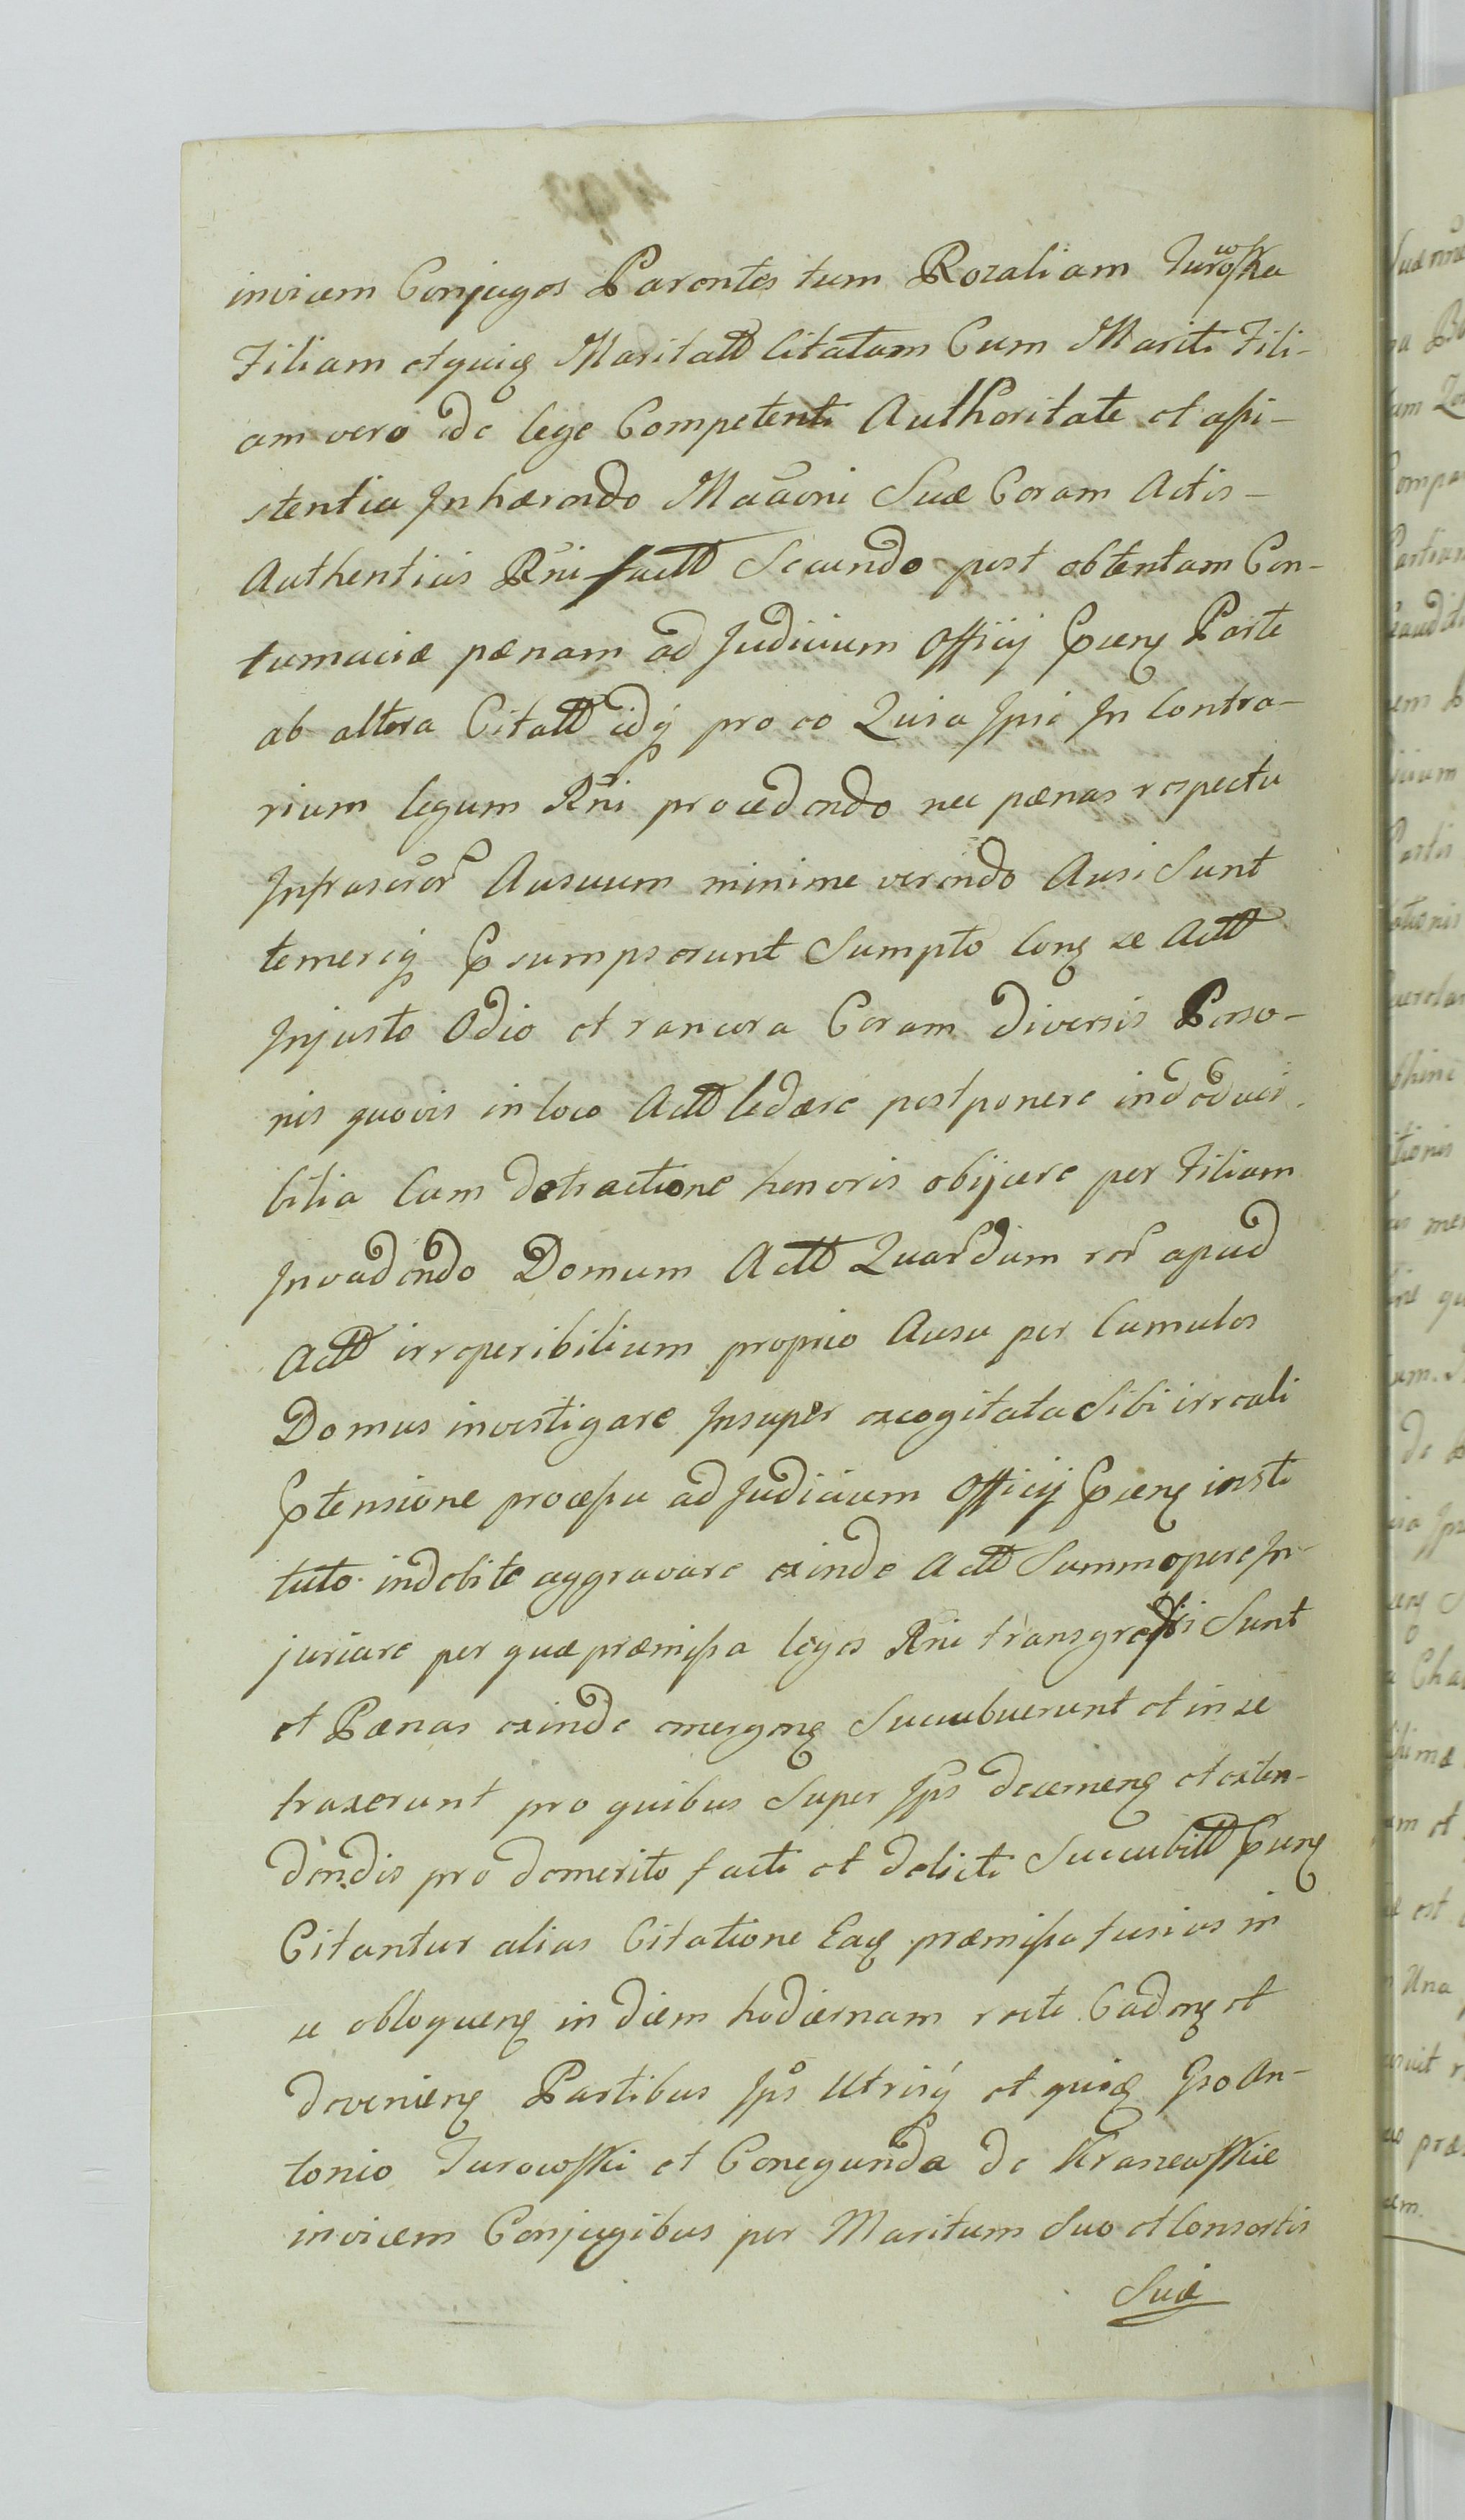 invicem Conjuges Parentes tum Rozaliam Turowska
Filiam etquiq Maritatt Citatam Cum Mariti Fili-
am vero de lege Competenti Authoritate et assi-
stentia Inhærendo Maāoni Suæ Coram Actis-
Authenticis Rñi factt Secundo post obtentam Con-
tumaciæ pænam ad Judicium Officij Pñenq Parte
ab altera Citatt idq pro eo Quia Ipsi In Contra-
rium legum Rñi procedendo nec pænas respectu
Infrascror Ausuum minime verendo Ausi Sunt
temeriq Psumpserunt Sumpto Conq se Actt
Injusto Odio et rancora Coram Diversis Perso-
nis quovis in loco Actt ledære postponere indeduci-
bilia Cum detractione honoris obijcere per Filiam
Invadendo Domum Actt Quardam rer apud
Actt irreperibilium proprio Ausu per Cumulos
Domus investigare Insuper excogitata Sibi irreali
Ptensione processu ad Judicium Officij Psenq insti
tuto indebite aggravare exinde Actt Summopere In-
juriare per quæ præmissa leges Rñi transgressi Sunt
et Pænas exinde emergenq Succubuerunt et in se
traxerunt pro quibus Super Ipsis decernenq et exten-
dendis pro demerito facti et delicti Succubitt Psenq
Citantur alias Citatione Eaq præmissa fusius in
se obloquenq in diem hodiernam recte Cadenq et
devenienq Partibus Ips Utrisq et quiq Gso An-
tonio Turowsski et Conegunda de Kraszewsskie
invicem Conjugibus per Maritum Suo et Consortis
Suæ